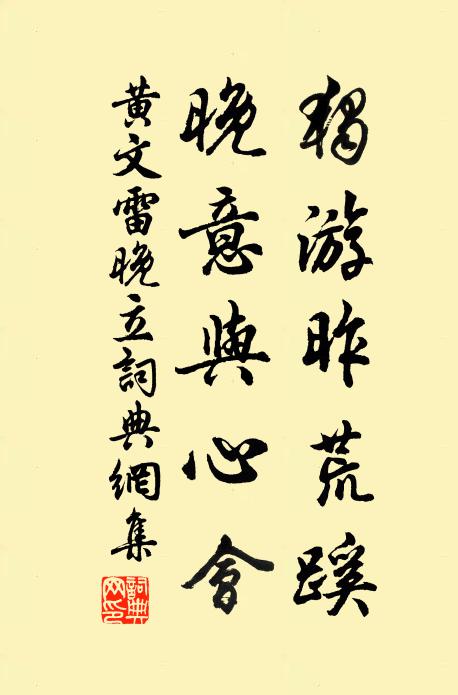 獨游昨荒蹊
晚意與心會
黃文雷晚立詞典網集